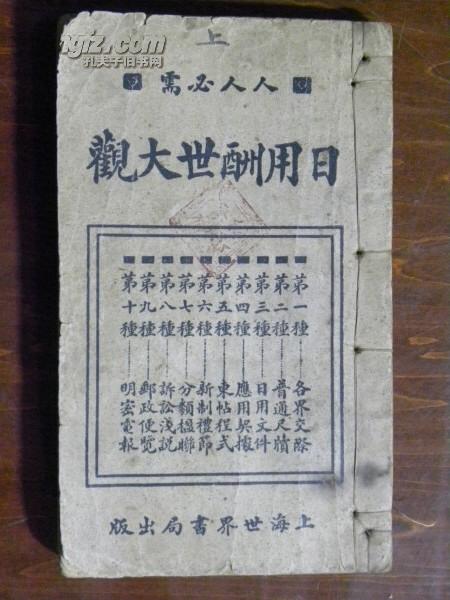 上
人人必需
日用酬世大觀
第一種 各界交際
第二種 普通尺牘
第三種 日用文件
第四種 應用契據
第五種 柬帖程式
第六種 新制禮節
第七種 分類楹聯
第八種 訴訟淺説
第九種 郵政便覽
第十種 明密電報
上海世界書局出版
gfz.com
孔夫子旧书网